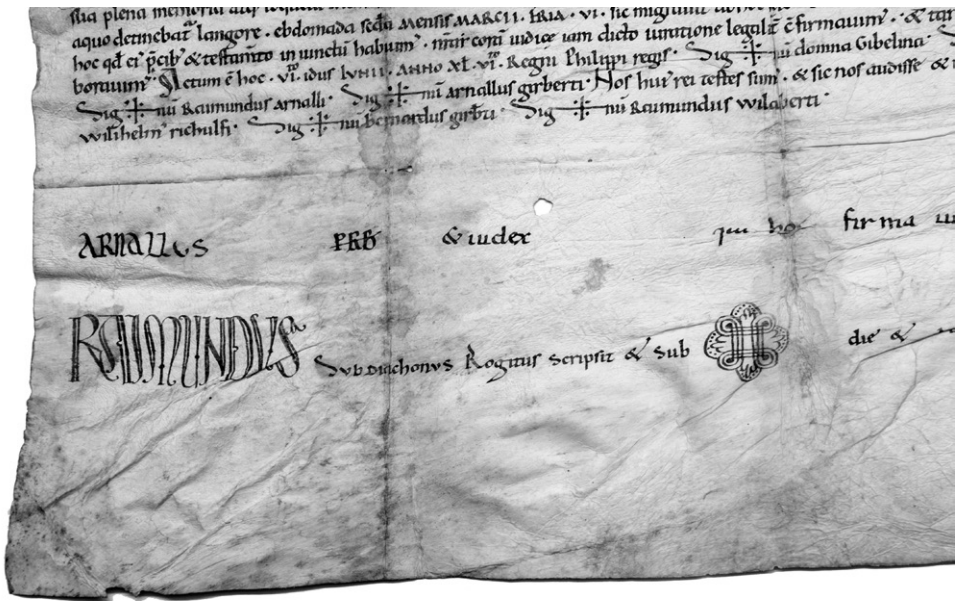 sua plena memoria
aquo detinebat langore · ebdomada scda mensis MARCII · FRIA · VI · sic migravit
hoc qd ei p̄cib; & testam̄to in iunctū habuim̄ · iudice iam dicto iuratione legalit̄ c̄firmavim̄ · &
boravim̄ · Actum ē hoc · VI^TO · idus IVNII · ANNO XL · VI^TO · Regni Philippi regis · Sig ⁜ nū domna Gibelina ·
Sig ⁜ nū Raimundus arnalli · Sig ⁜ nū arnallus girberti · Nos hui' rei testes sum' · & sic nos audisse &
wilihelm' richulfi · Sig ⁜ nū bernardus girbti · Sig ⁜ nū Raimundus wilaberti ·
ARNALLUS PRB & iudex firma
RAIMUNDUS Subdiachonus Rogitus scripsit & sub die &